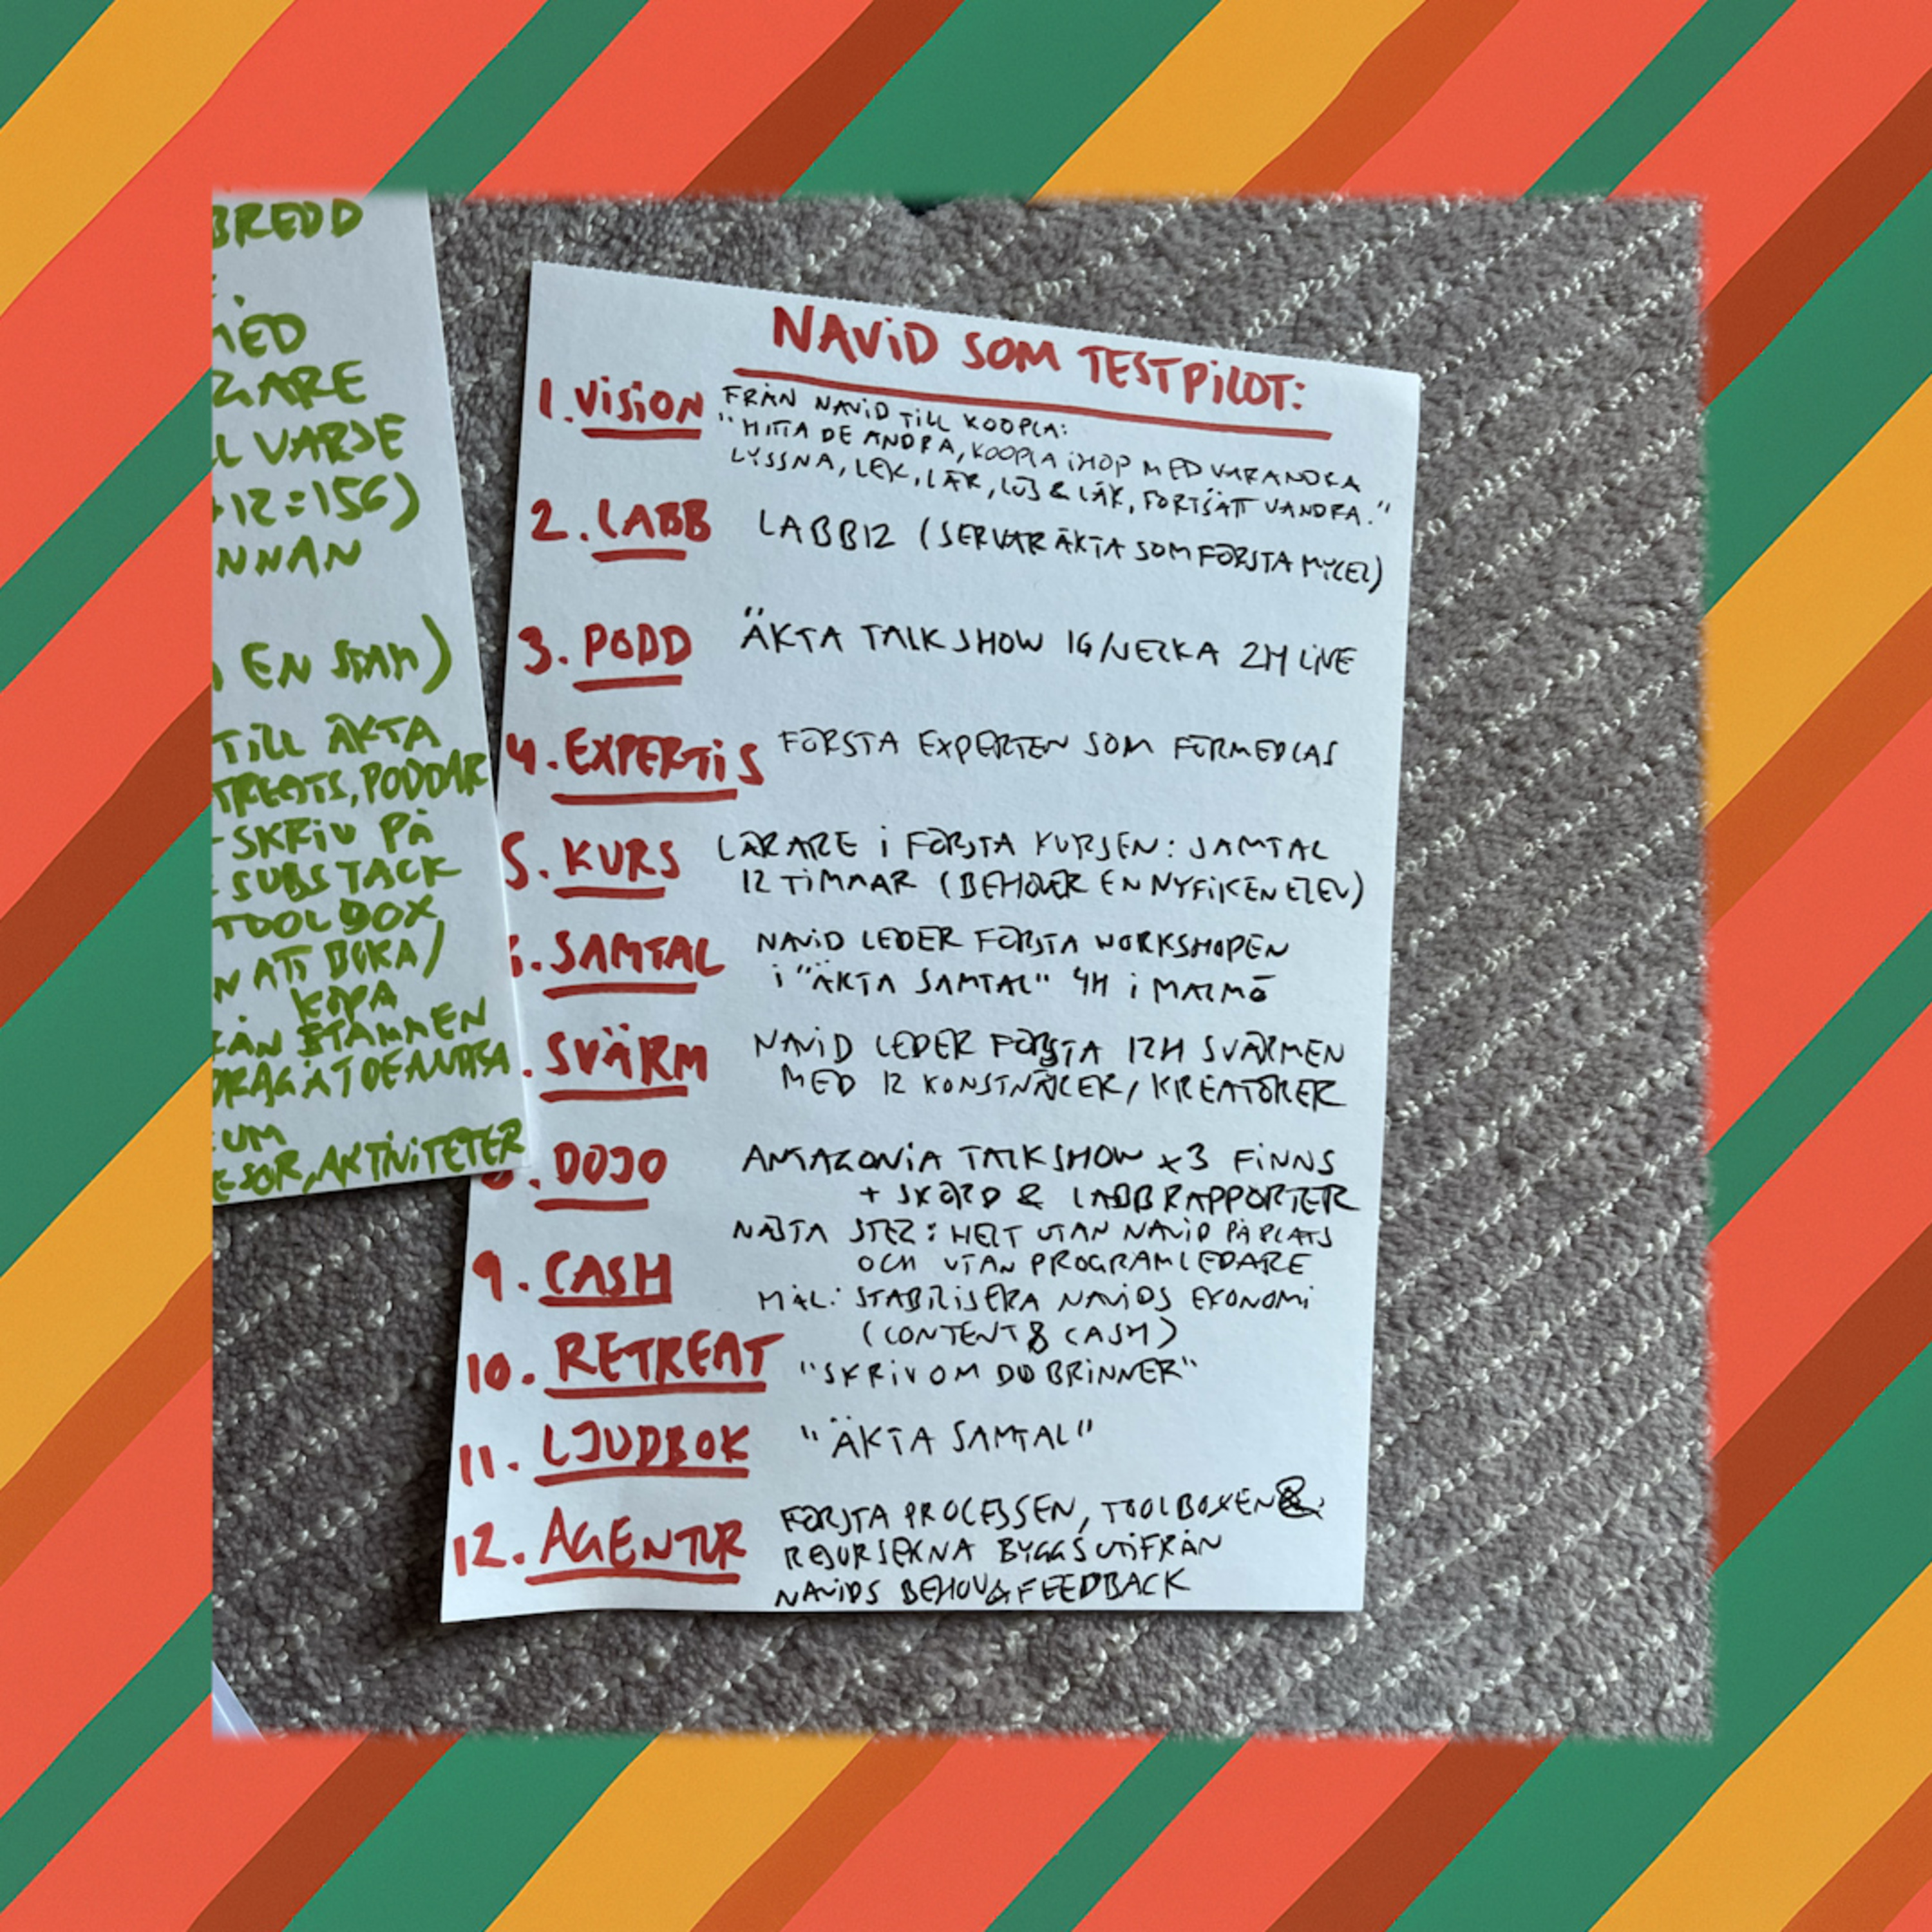 BREDD
MED
GARE
L VARJE
+12=156)
NNAN
EN STAM)
TILL ÄKTA
TREATS, PODDAR
-SKRIV PÅ
SUBSTACK
TOOLBOX
N ATT BOKA/
KÖPA
ÅN STAMMEN
DRAGAT DE ANDRA
UM
ESOR, AKTIVITETER
NAViD SOM TESTPiLOT:
1. ViSiON FRÅN NAViD TiLL KOOPLA:
"HITTA DE ANDRA, KOOPLA iHOP MED VARANDRA
LYSSNA, LEK, LÄR, LÖS & LÄK, FORTSÄTT VANDRA."
2. LABB LABB12 (SERVAR ÄKTA SOM FÖRSTA MYCEL)
3. PODD ÄKTA TALKSHOW 1G/VECKA 2H LiVE
4. EXPERTiS FÖRSTA EXPERTEN SOM FÖRMEDLAS
5. KURS LÄRARE i FÖRSTA KURSEN: SAMTAL
12 TiMMAR (BEHÖVER EN NYFiKEN ELEV)
. SAMTAL NAViD LEDER FÖRSTA WORKSHOPEN
i "ÄKTA SAMTAL" 4H i MALMÖ
. SVÄRM NAViD LEDER FÖRSTA 12H SVÄRMEN
MED 12 KONSTNÄRER/KREATÖRER
8. DOJO AMAZONiA TALKSHOW x3 FiNNS
+ SKÖRD & LABBRAPPORTER
NÄSTA STEG: HELT UTAN NAViD PÅ PLATS
OCH UTAN PROGRAMLEDARE
9. CASH MÅL: STABiLiSERA NAViDS EKONOMi
(CONTENT & CASH)
10. RETREAT "SKRiV OM DU BRiNNER"
11. LJUDBOK "ÄKTA SAMTAL"
12. AGENTUR FÖRSTA PROCESSEN, TOOLBOXEN &
RESURSERNA BYGGS UTiFRÅN
NAViDS BEHOV & FEEDBACK